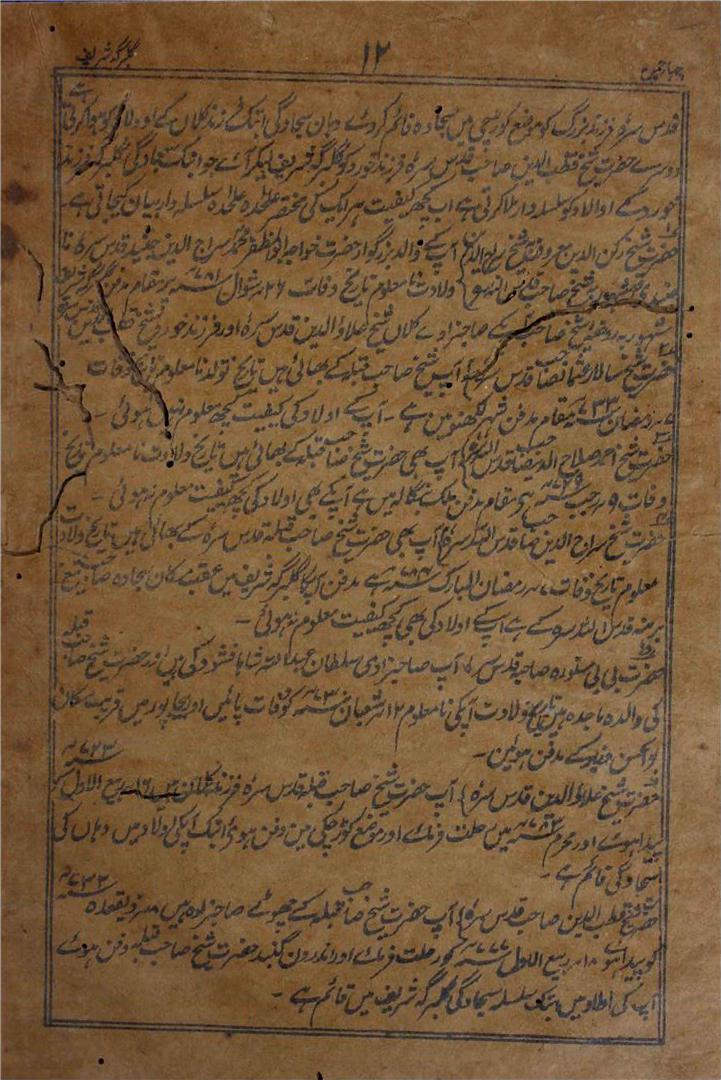 ۱۲
گلبرگہ شریف
قدس سرہ فرزند بزرگ کو موضع کوڑچی میں سجادہ قائم کر دئے وہان سجادگی ابتک فرزند کلاں کے اولاد کو ہوا کرتی ہے
دوسرے حضرت شیخ قطب الدین صاحب قدس سرہ فرزند خورد کو گلبرگہ شریف لیکر آئے جو ابتک سجادگی گلبرگہ فرزند
خورد کے اولاد کو سلسلہ دار ملا کرتی ہے اب کچھ کیفیت ہر ایک کی مختصر علحدہ علحدہ سلسلہ دار بیان کیجاتی ہے۔
حضرت شیخ رکن الدین معروف شیخ سراج الدین آپ کے والد بزرگوار حضرت خواجہ ابو المظفر محمد سراج الدین جنیدی قدس سرہ
جنیدی مشہور شیخ صاحب قدس اللہ سرہ ولادت نا معلوم تاریخ وفات ۲۶ شوال ۷۸۱ھ ہے مقام مدفن گلبرگہ شریف
مشہور بہ روضہ شیخ صاحب آپ کے صاحبزادے کلاں شیخ علاؤ الدین قدس سرہ اور فرزند خورد شیخ قطب الدین قدس سرہ
حضرت شیخ سالار عثمان صاحب قدس سرہ آپ شیخ صاحب قبلہ کے بھائی ہیں تاریخ تولد نا معلوم تاریخ وفات
رمضان ۷۳۳ھ مقام مدفن شہر لکھنو میں ہے۔ آپ کے اولاد کی کیفیت کچھ معلوم نہیں ہوئی۔
حضرت شیخ احمد صلاح الدین صاحب قدس اللہ سرہ آپ بھی حضرت شیخ صاحب قبلہ کے بھائی ہیں تاریخ ولادت نا معلوم تاریخ
وفات ۹ رجب ۷۲۹ھ ہے مقام مدفن ملک بنگالہ میں ہے آپ کے بھی اولاد کی کچھ کیفیت معلوم نہ ہوئی۔
حضرت شیخ سراج الدین صاحب قدس اللہ سرہ آپ بھی حضرت شیخ صاحب قبلہ قدس سرہ کے بھائی ہیں تاریخ ولادت
معلوم تاریخ وفات رمضان المبارک ہے مدفن آپ کا گلبرگہ شریف میں عقب مکان سجادہ صاحب تیغ
برہنہ قدس اللہ سرہ کے ہے آپ کے اولاد کی بھی کچھ کیفیت معلوم نہ ہوئی۔
حضرت بی بی مستورہ صاحبہ قدس سرہا آپ صاحبزادی سلطان عبداللہ شاہ کی ہیں اور حضرت شیخ صاحب قبلہ
کی والدہ ماجدہ ہیں تاریخ ولادت آپکی نا معلوم ۱۲ شعبان کو وفات پائیں اور بیجاپور میں قریب مکان
ابو الحسن کے مدفن ہوئیں۔
حضرت شیخ علاؤ الدین قدس سرہ آپ حضرت شیخ صاحب قبلہ قدس سرہ فرزند کلاں ہیں ۱۶ ربیع الاول ۷۲۳ھ کو
پیدا ہوئے اور محرم میں رحلت فرمائے اور موضع کوڑچی میں دفن ہوئے ابتک آپکی اولاد میں وہاں کی
سجادگی قائم ہے۔
حضرت شیخ قطب الدین صاحب قدس سرہ آپ حضرت شیخ صاحب قبلہ کے چھوٹے صاحبزادہ ہیں ذیقعدہ ۷۳۲ھ
کو پیدا ہوئے ۱۸ ربیع الاول ۷۷۷ھ کو رحلت فرمائے اور اندرون گنبد حضرت شیخ صاحب قبلہ دفن ہوئے
آپ کی اولاد میں ابتک سلسلہ سجادگی گلبرگہ شریف میں قائم ہے۔